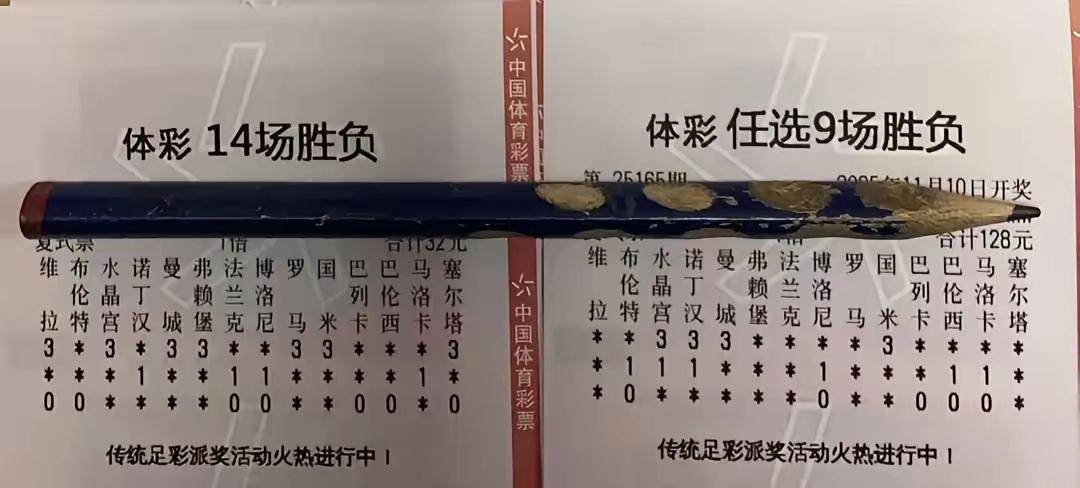 体彩 14场胜负
复式票 1倍 合计32元
维拉 布伦特 水晶宫 诺丁汉 曼城 弗赖堡 法兰克 博洛尼 罗马 国米 巴列卡 巴伦西 马洛卡 塞尔塔
3 * 3 * 3 3 * * 3 3 * * * 3
* * * 1 * * 1 1 * * * * 1 *
0 0 * * * * 0 0 * * 0 0 * 0
传统足彩派奖活动火热进行中！
中国体育彩票
中国体育彩票
体彩 任选9场胜负
第 25165期 2025年11月10日开奖
合计128元
维拉 布伦特 水晶宫 诺丁汉 曼城 弗赖堡 法兰克 博洛尼 罗马 国米 巴列卡 巴伦西 马洛卡 塞尔塔
* * 3 3 3 * * * * 3 * * * *
* 1 1 1 * * * 1 * * * 1 1 *
* 0 * * * * * 0 * * 0 0 0 *
传统足彩派奖活动火热进行中！